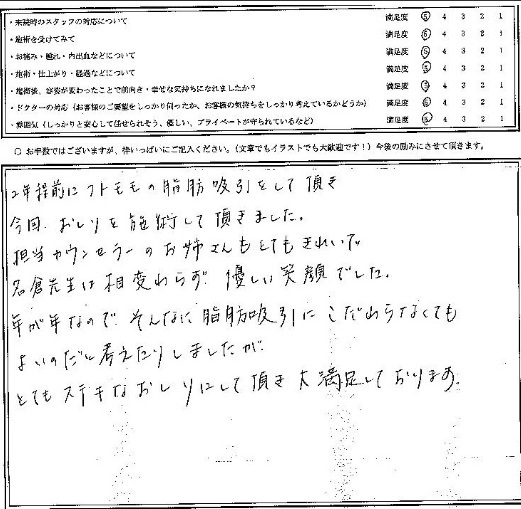 ・来院時のスタッフの対応について 満足度 ⑤ 4 3 2 1
・施術を受けてみて 満足度 ⑤ 4 3 2 1
・お痛み・腫れ・内出血などについて 満足度 ⑤ 4 3 2 1
・施術・仕上がり・経過などについて 満足度 ⑤ 4 3 2 1
・施術後、容姿が変わったことで前向き・幸せな気持ちになれましたか? 満足度 ⑤ 4 3 2 1
・ドクターの対応(お客様のご要望をしっかり伺ったか、お客様の気持ちをしっかり考えているかどうか) 満足度 ⑤ 4 3 2 1
・雰囲気(しっかりと安心して任せられそう、優しい、プライベートが守られているなど) 満足度 ⑤ 4 3 2 1
○ お手数ではございますが、枠いっぱいにご記入ください。(文章でもイラストでも大歓迎です!)今後の励みにさせて頂きます。
2年程前にフトモモの脂肪吸引をして頂き
今回、おしりを施術して頂きました。
担当カウンセラーのお姉さんもとてもきれいで
名倉先生は相変わらず優しい笑顔でした。
年が年なので そんなに脂肪吸引にこだわらなくても
よいのだと考えたりしましたが
とてもステキなおしりにして頂き大満足しております。